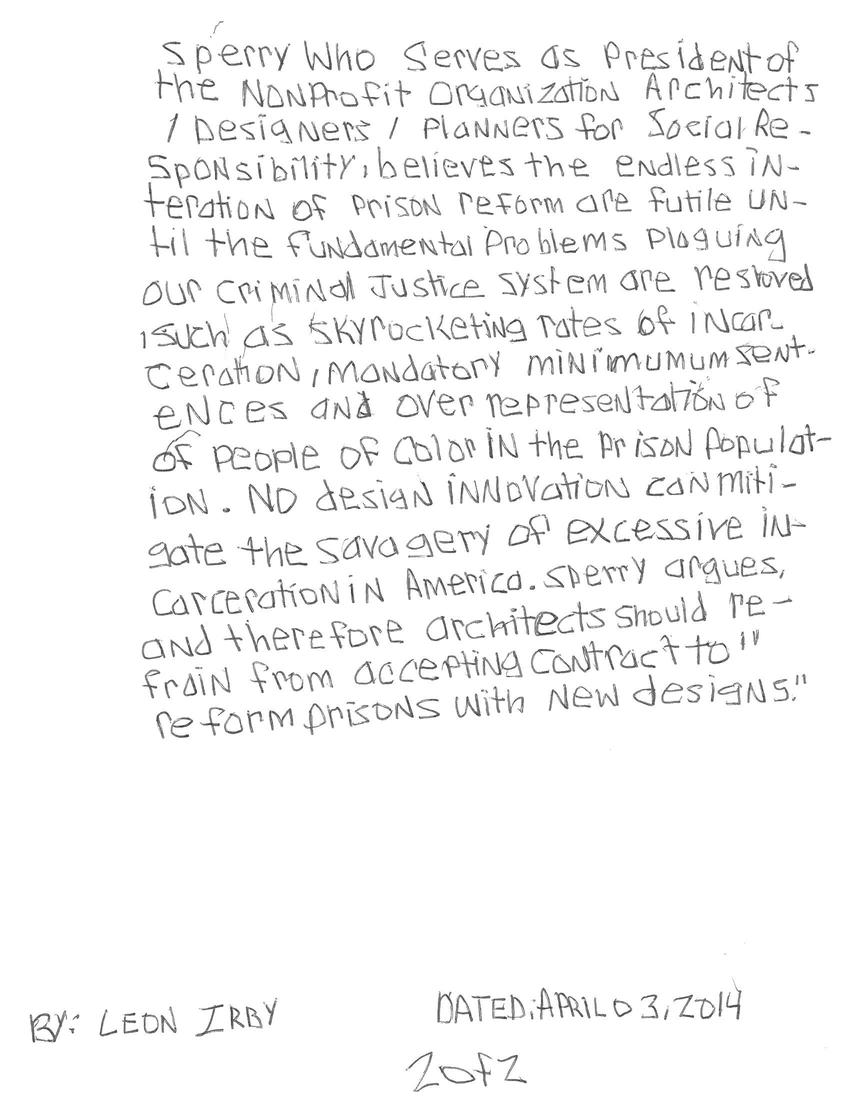 Sperry Who Serves as President of
the NonProfit Organization Architects
/ Designers / Planners for Social Re-
sponsibility, believes the endless in-
teration of prison reform are futile un-
til the fundamental Problems plaguing
our criminal Justice system are resloved
, such as skyrocketing rates of incar-
ceration, mandatory minimumum sent-
ences and over representation of
of people of color in the prison populat-
ion. No design innovation can miti-
gate the savagery of excessive in-
carceration in America. Sperry argues,
and therefore architects should re-
frain from accepting contract to "
reform prisons with new designs."
BY: LEON IRBY
DATED; APRIL 03, 2014
2 of 2